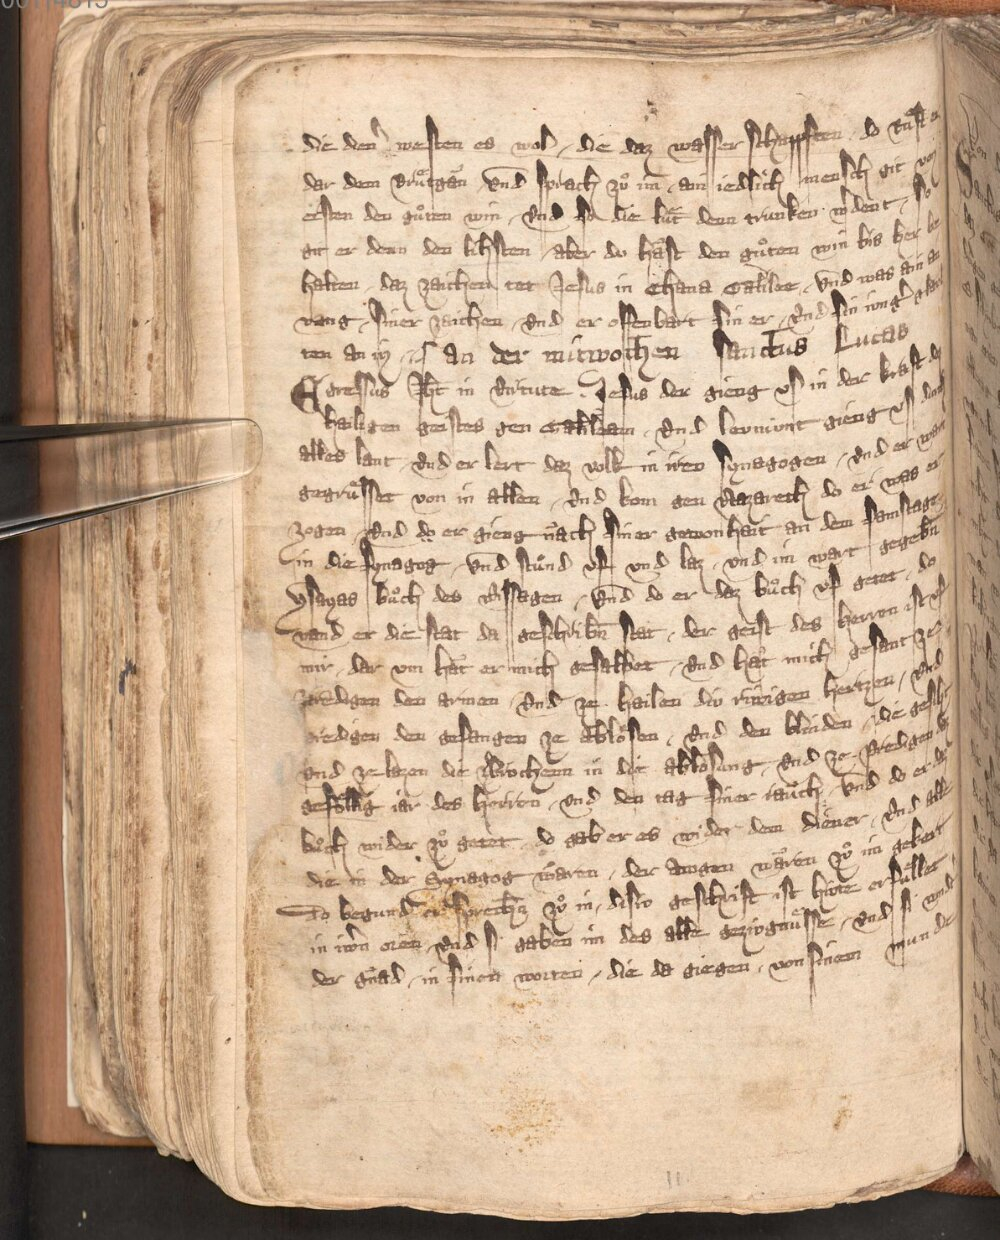 00114815
die den͛ westen es wol / die daz wasser schuppften do růft er
dar dem brútgan̄ vnd sprach zů im / ain iedlich mensch git von
ersten den gůten win / vnd so die lút denn trunken w͛dent / so
git er denn den lihsten / aber du häst den gůten win bis her be
halten / daz zaichen tet Jesus in Chana Galilee / vnd was ain an
vang siner zaichen / vnd er offenbart sin er / vnd sin iung͛ gloub
ten an in / an der mitwochen Sanctus Lucas
Egressus Jhc in virtute . Jesus der gieng vs in der kraft des
hailigen geistes gen Galileam / vnd leumunt gieng vs durch
alles lant / vnd er lert daz volk in iren synagogen / vnd er wart
gegrússet von in allen / vnd kom gen Nazareth do er was er
zogen / vnd do er gieng näch siner gewonhait an dem samstage
in die synagog / vnd stůnd vf vnd laz / vnd im wart gegebn̄
ysayas bůch des wissagen / vnd do er daz bůch vf getet / do
vand er die stat da geschribn̄ stat / der geist des herren ist vf
mir / dar vm hät er mich gesalbet / vnd hät mich gesant ze
predigen den armen / vnd ze hailen die riwigen hertzen / vnd
predigen den gefangen ze ablosen / vnd den blinden / die gesiht
vnd ze lazen die zerbrochenn in die ablosung / vnd ze predigen dz
gefellig iar des herren / vnd den tag siner rauch vnd do er dz
bůch wider zů getet / do gab er es wider dem diener / vnd alle
die in der Synagog wären / der augen wären zů im gekert
Do begund er sprechn̄ zů in / disiv geschrift ist hiute erfúllet
in iwrn̄ oren / vnd si gaben im des alle geziugnússe / vnd si wndt
der gnad / in sinen worten / die da giegen / von sinem munde